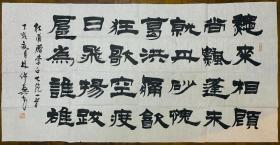 龝來相顧
尚飄蓬未
就丹砂愧
葛洪痛飲
狂歌空度
日飛揚跋
扈為誰雄
杜甫贈李白七絕一首
丁亥